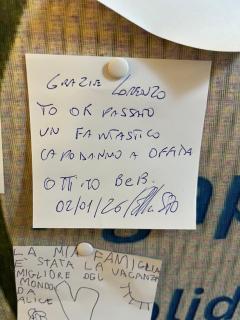 GRAZIE LORENZO
TO OR PASSATO
UN FANTASTICO
CAPODANNO A OFFIDA
OTTITO BEB.
02/01/26
LA MIA FAMIGLIA
E' STATA LA VACANZA
MIGLIORE DEL
MONDO
DA
ALICE